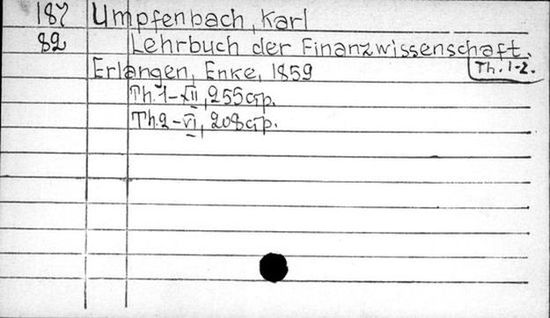 187 Umpfenbach, Karl
82 Lehrbuch der Finanzwissenschaft.
Th. 1-2.
Erlangen, Enke, 1859
Th. 1 - XII, 255 стр.
Th. 2 - VI, 208 стр.